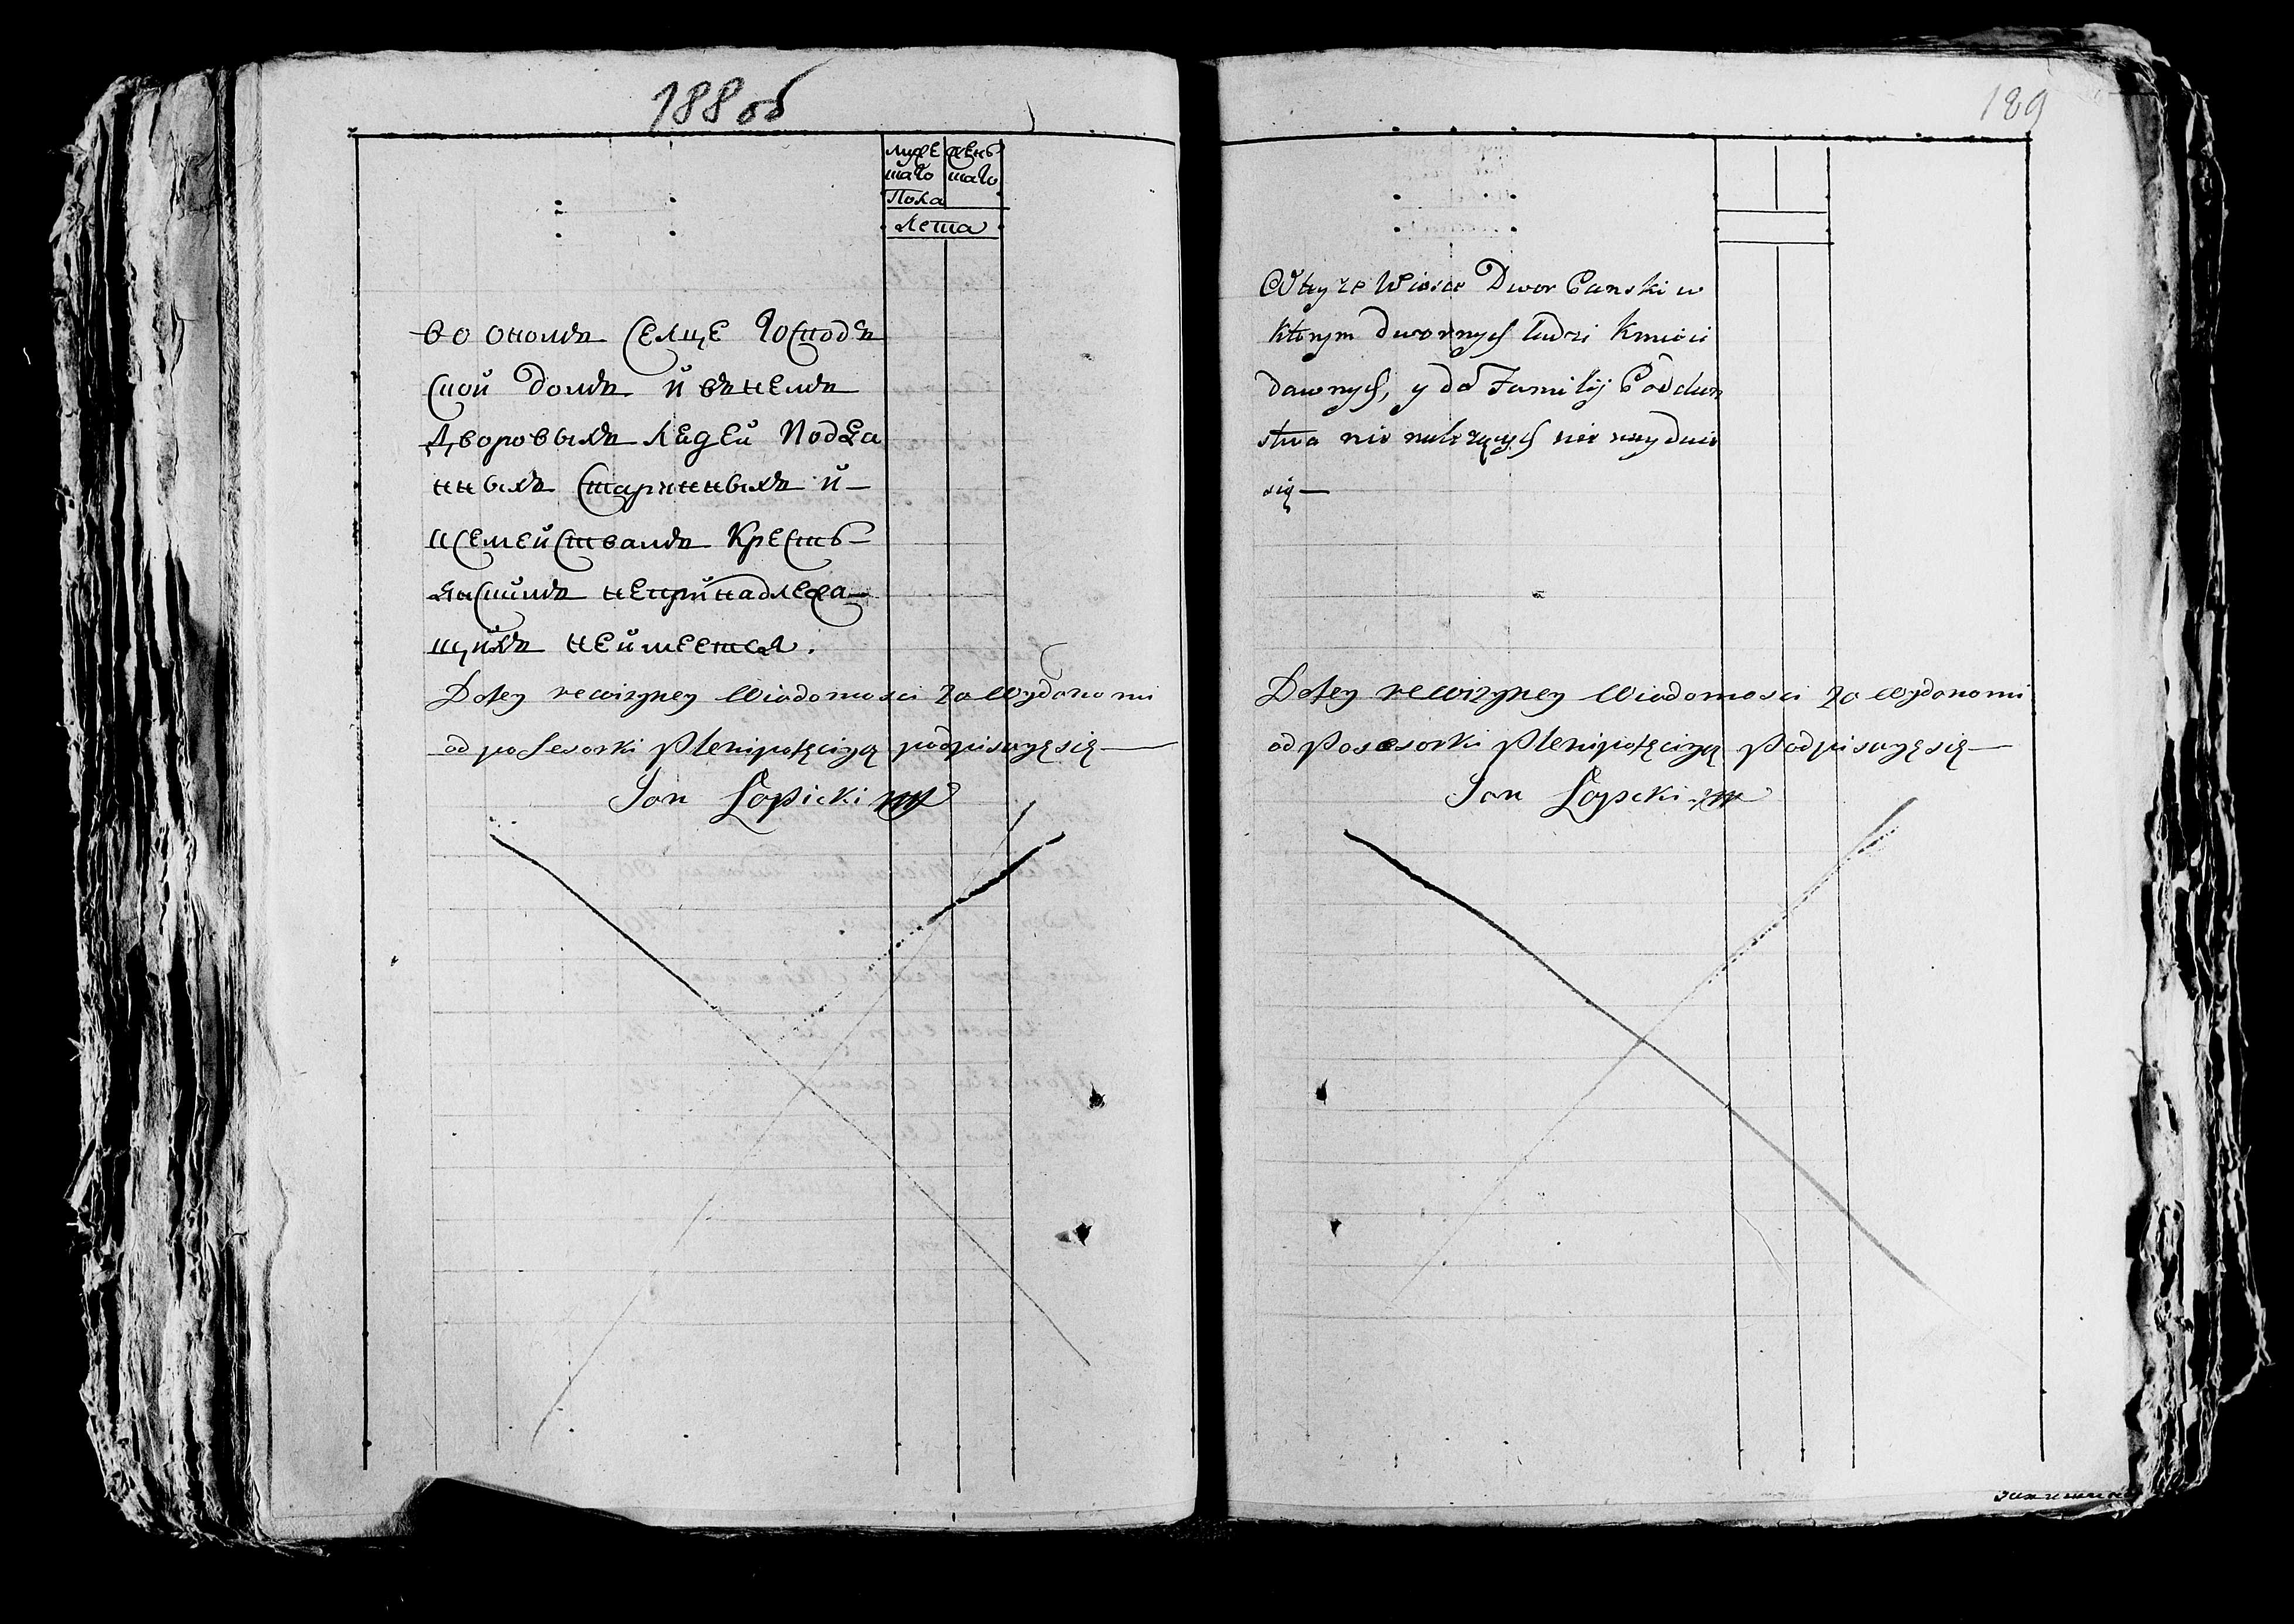 188 об
муже женъ
скаго скаго
Пола
Лета
Во ономъ селце господъ
ской домъ и внемъ
дворовыхъ людей подда
нныхъ старинныхъ и
ксемействамъ кресть
янскимъ непринадлежа
щихъ неимеется.
Do tey rewizyney wiadomosci za wydano mi
od posesorki plenipotęcizyą podpisuyę się
Jan Łopicki mp
189
W tey ze Wiosce Dwor Panski w
ktorym dwornych ludzi Kmieci
dawnych, y do Familij Poddan
stwa nie nalezących nie znayduie
się
Do tey rewizyney Wiadomosci za wydano mi
od Posesorki Plenipotęcizyą Podpisuyę się
Jan Łopicki mp